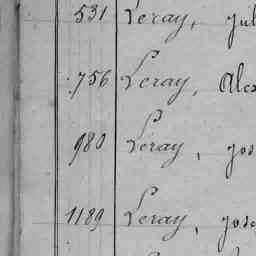 531 Leray, Jul
756 Leray, Alex
980 Leray, jos
1189 Leray, jose